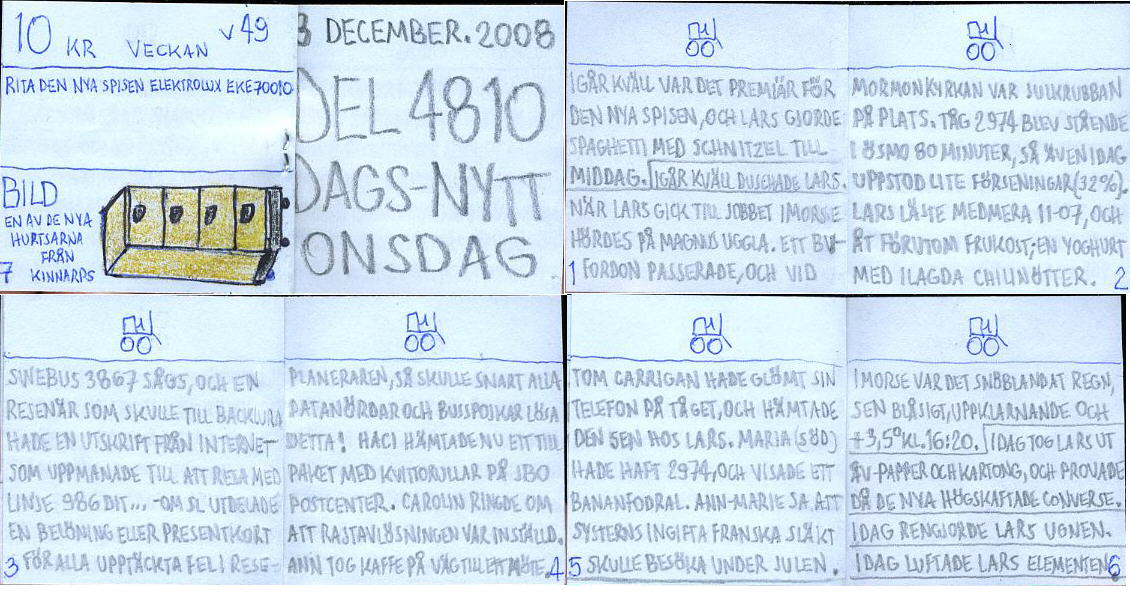 10 KR VECKAN V49
RITA DEN NYA SPISEN ELEKTROLUX EKE70010
BILD
EN AV DE NYA
HURTSARNA
FRÅN
7 KINNARPS
3 DECEMBER. 2008
DEL 4810
DAGS-NYTT
ONSDAG
IGÅR KVÄLL VAR DET PREMIÄR FÖR
DEN NYA SPISEN, OCH LARS GJORDE
SPAGHETTI MED SCHNITZEL TILL
MIDDAG. IGÅR KVÄLL DUSCHADE LARS.
NÄR LARS GICK TILL JOBBET IMORSE
HÖRDES PÅ MAGNUS UGGLA. ETT BV-
1 FORDON PASSERADE, OCH VID
MORMONKYRKAN VAR JULKRUBBAN
PÅ PLATS. TÅG 2974 BLEV STÅENDE
I ÖSMO 80 MINUTER, SÅ ÄVEN IDAG
UPPSTOD LITE FÖRSENINGAR (32%).
LARS LÄSTE MEDMERA 11-07, OCH
ÅT FÖRUTOM FRUKOST; EN YOGHURT
MED ILAGDA CHILINÖTTER. 2
SWEBUS 3867 SÅGS, OCH EN
RESENÄR SOM SKULLE TILL BACKLURA
HADE EN UTSKRIFT FRÅN INTERNET
SOM UPPMANADE TILL ATT RESA MED
LINJE 986 DIT... -OM SL UTDELADE
EN BELÖNING ELLER PRESENTKORT
3 FÖR ALLA UPPTÄCKTA FEL I RESE-
PLANERAREN, SÅ SKULLE SNART ALLA
DATANÖRDAR OCH BUSSPOJKAR LÖSA
DETTA! HACI HÄMTADE NU ETT TILL
PAKET MED KVITTORULLAR PÅ JBO
POSTCENTER. CAROLIN RINGDE OM
ATT RASTAVLÖSNINGEN VAR INSTÄLLD.
ANN TOG KAFFE PÅ VÄG TILL ETT MÖTE. 4
TOM CARRIGAN HADE GLÖMT SIN
TELEFON PÅ TÅGET, OCH HÄMTADE
DEN SEN HOS LARS. MARIA (SÖD)
HADE HAFT 2974, OCH VISADE ETT
BANANFODRAL. ANN-MARIE SA ATT
SYSTERNS INGIFTA FRANSKA SLÄKT
5 SKULLE BESÖKA UNDER JULEN.
IMORSE VAR DET SNÖBLANDAT REGN,
SEN BLÅSIGT, UPPKLARNANDE OCH
+3,5° KL. 16:20. IDAG TOG LARS UT
ÅV-PAPPER OCH KARTONG, OCH PROVADE
DÅ DE NYA HÖGSKAFTADE CONVERSE.
IDAG RENGJORDE LARS UGNEN.
IDAG LUFTADE LARS ELEMENTEN 6